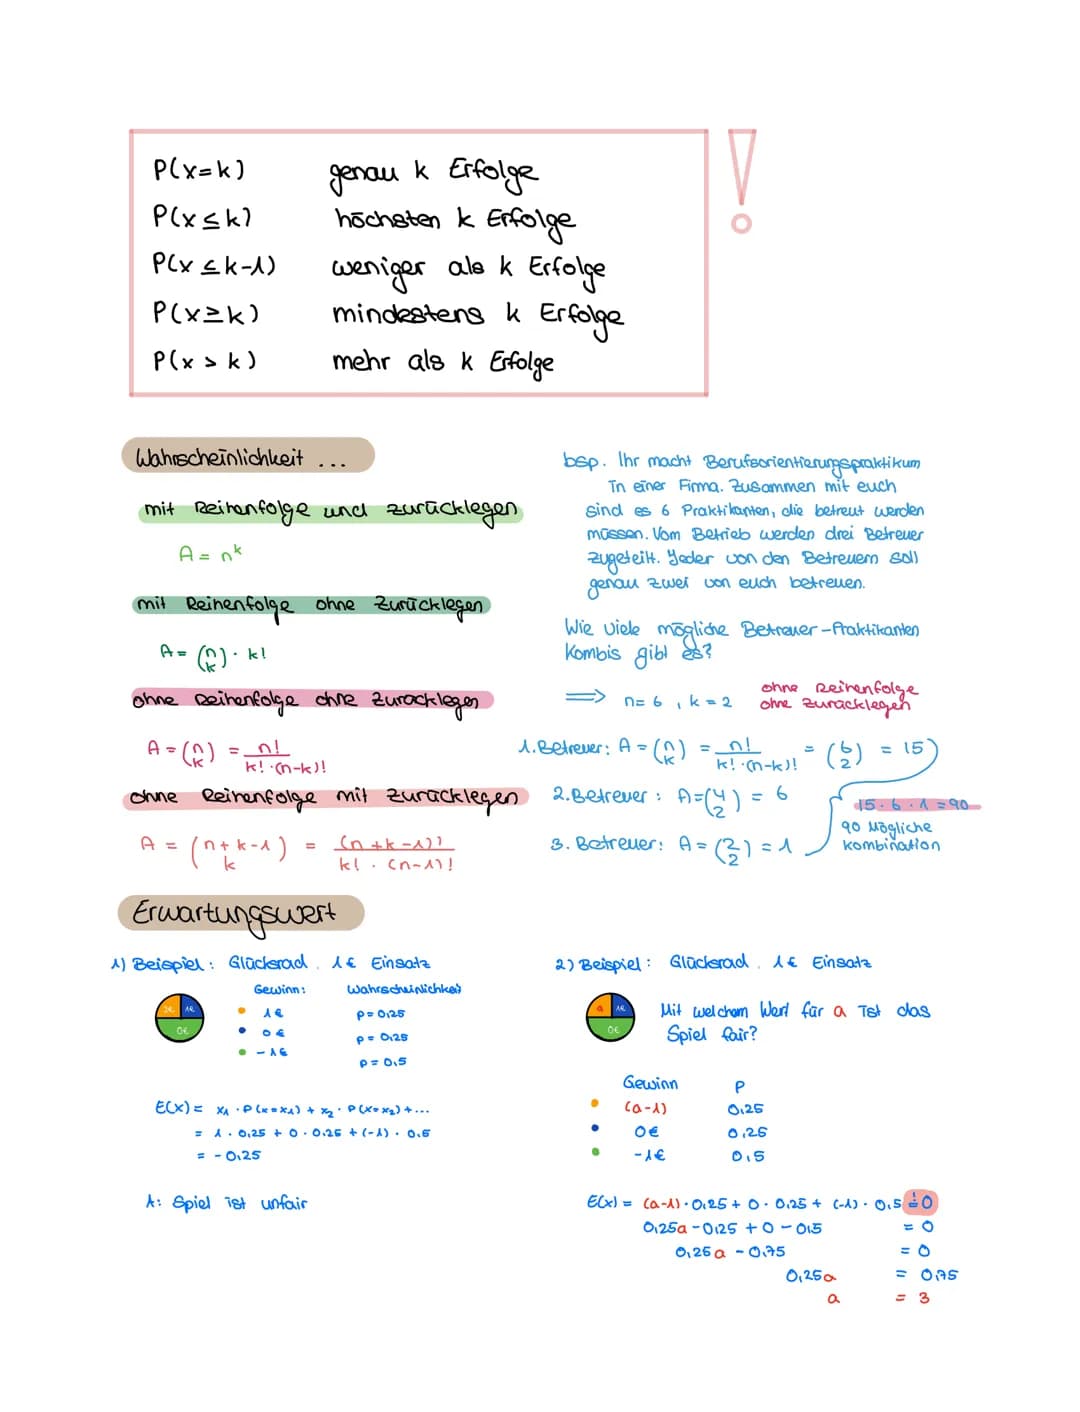 P(x=k) genau k Erfolge
P(x≤k) höchsten k Erfolge
P(x≤k-1) weniger als k Erfolge
P(x≥k) mindestens k Erfolge
P(x > k) mehr als k Erfolge
!
Wahrscheinlichkeit ...
mit Reihenfolge und zurücklegen
A = n^k
mit Reihenfolge ohne Zurücklegen
A = (n k) · k!
ohne Reihenfolge ohne Zurücklegen
A = (n k) = n! / k! · (n-k)!
ohne Reihenfolge mit Zurücklegen
A = (n+k-1 k) = (n+k-1)! / k! · (n-1)!
bsp. Ihr macht Berufsorientierungspraktikum
In einer Firma. Zusammen mit euch
sind es 6 Praktikanten, die betreut werden
müssen. Vom Betrieb werden drei Betreuer
zugeteilt. Jeder von den Betreuern soll
genau zwei von euch betreuen.
Wie viele mögliche Betreuer-Praktikanten
Kombis gibt es?
⟹ n=6 , k=2 ohne Reihenfolge
ohne zurücklegen
1. Betreuer: A = (n k) = n! / k! · (n-k)! = (6 2) = 15
2. Betreuer: A = (4 2) = 6
3. Betreuer: A = (2 2) = 1
15 · 6 · 1 = 90
90 Mögliche
kombination
Erwartungswert
1) Beispiel: Glücksrad, 1€ Einsatz
Gewinn: Wahrscheinlichkeit
2€ 1€
0€
• 1€ p = 0,25
• 0€ p = 0,25
• -1€ p = 0,5
E(x) = x₁ · P(x=x₁) + x₂ · P(x=x₂) + ...
= 1 · 0,25 + 0 · 0,25 + (-1) · 0,5
= -0,25
A: Spiel ist unfair
2) Beispiel: Glücksrad, 1€ Einsatz
a 1€
0€
Mit welchem Wert für a ist das
Spiel fair?
Gewinn P
• (a-1) 0,25
• 0€ 0,25
• -1€ 0,5
E(x) = (a-1) · 0,25 + 0 · 0,25 + (-1) · 0,5 != 0
0,25a - 0,25 + 0 - 0,5 = 0
0,25a - 0,75 = 0
0,25a = 0,75
a = 3